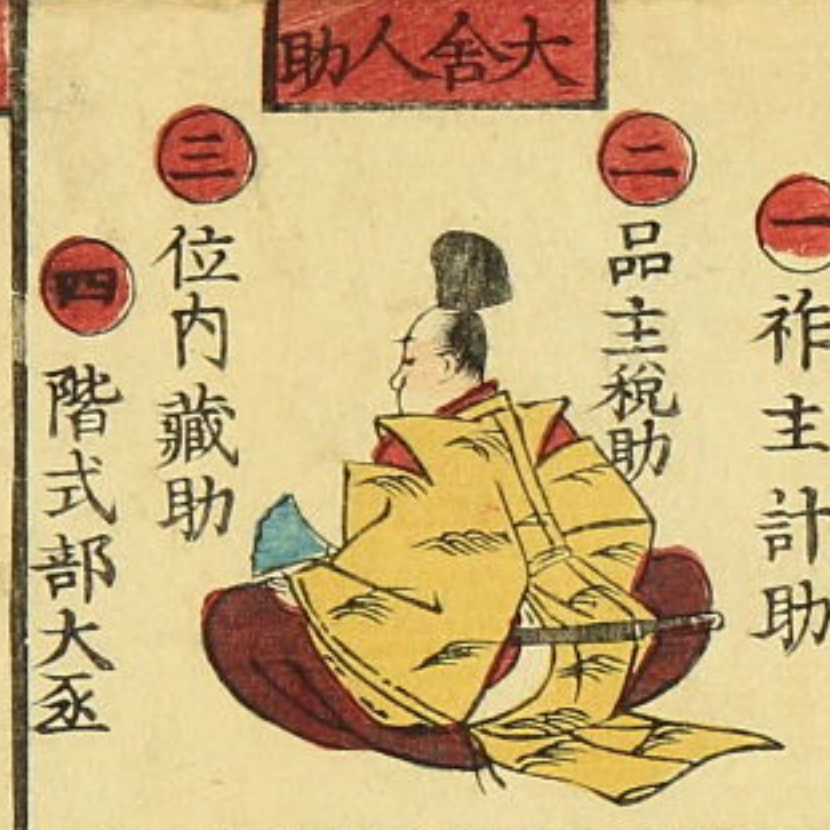 大舎人助
一
祚主計助
二
品主税助
三
位内藏助
四
階式部大丞